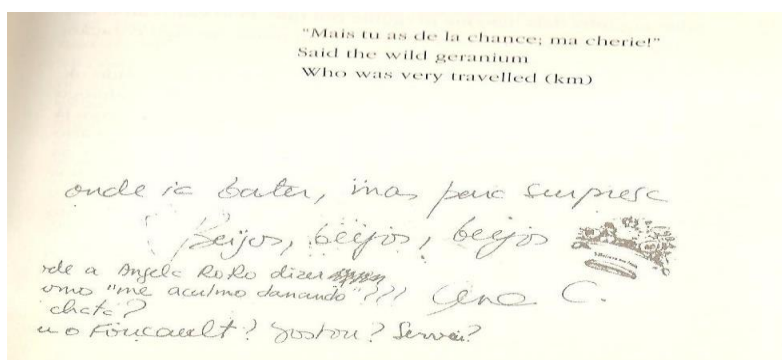 "Mais tu as de la chance; ma cherie!"
Said the wild geranium
Who was very travelled (km)
onde ia bater, mas para surpresa
Beijos, beijos, beijos
de a Angela RoRo dizer
omo "me acalmo danando"???
Ana C.
chata?
u o Foucault? Gostou? Serviu?